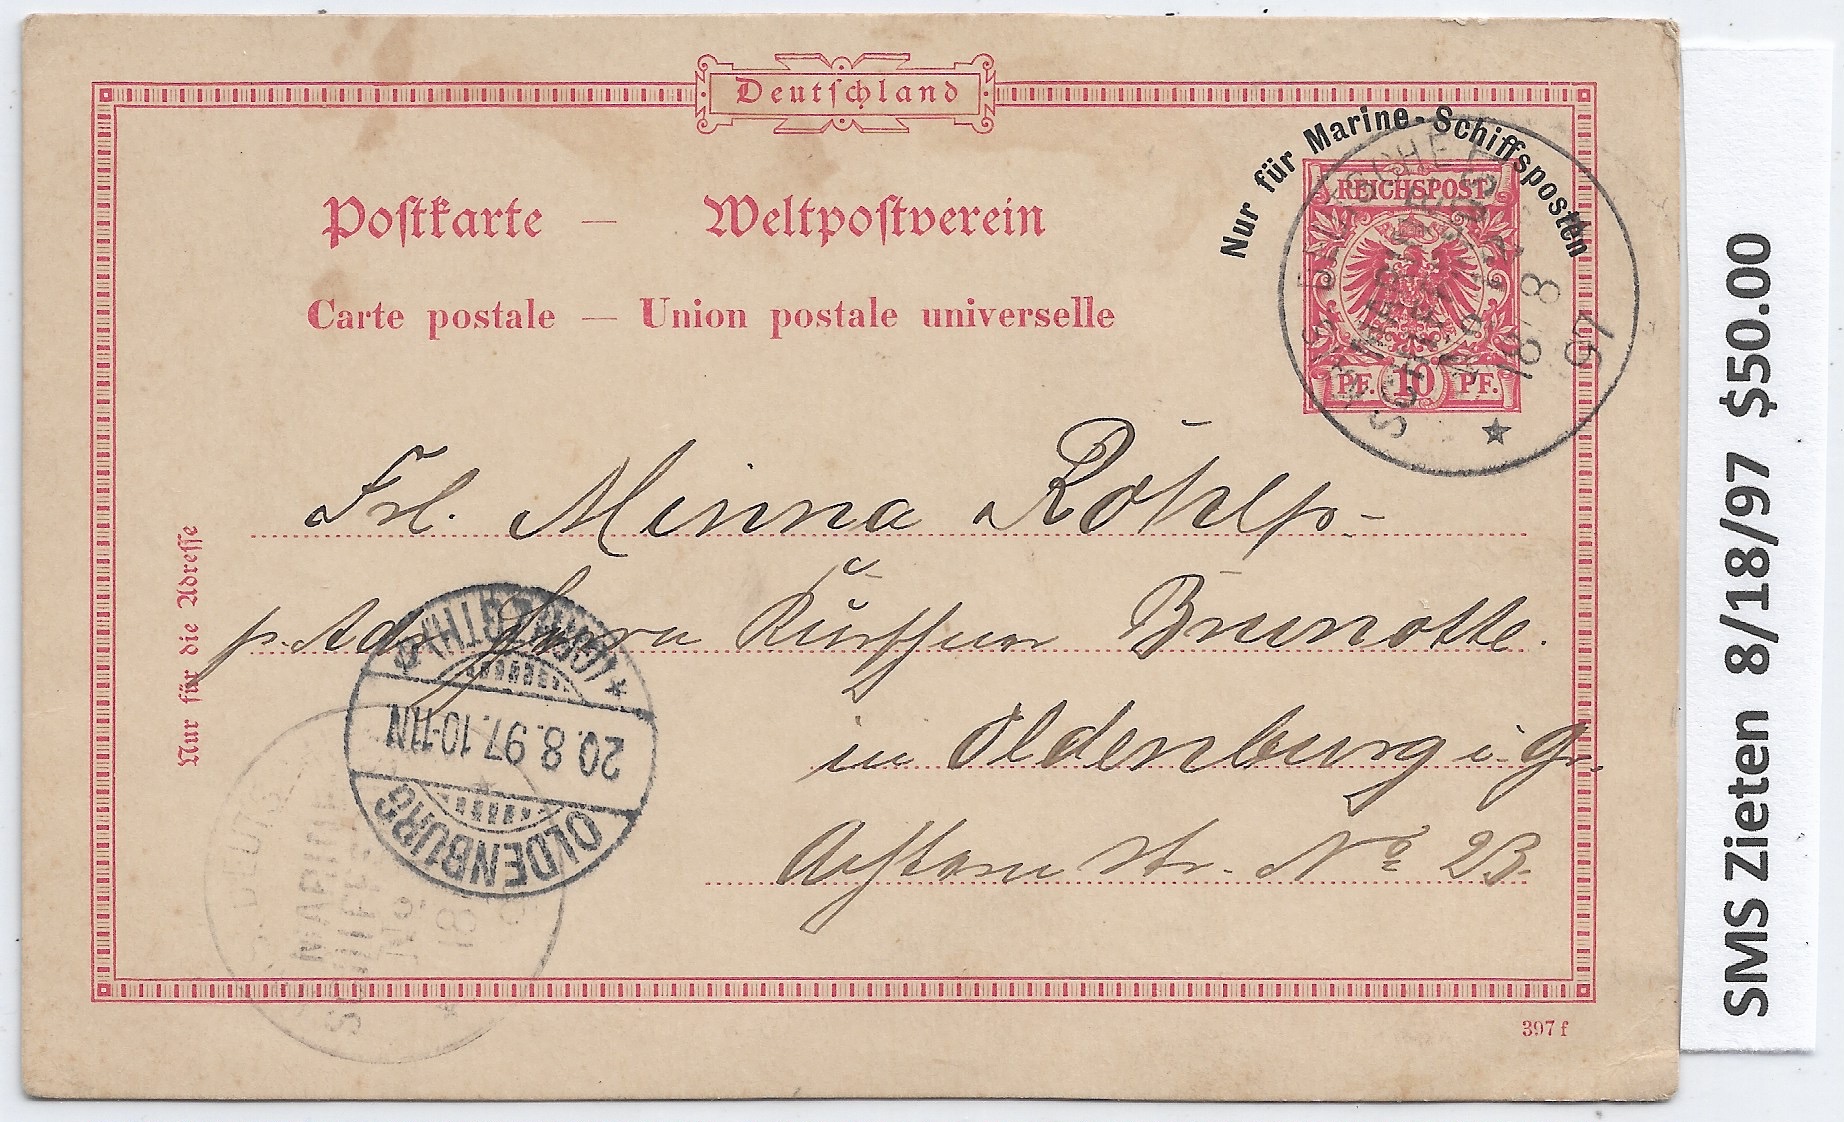 Deutschland
Nur für Marine-Schiffsposten
Postkarte — Weltpostverein
Carte postale — Union postale universelle
REICHSPOST
PF. 10 PF.
DEUTSCHE
MARINE-
SCHIFFSPOST
No
18/8
97
Frl. Minna
p. Adr. Herrn Brunotte.
in Oldenburg i. Gr.
str. No 23.
Nur für die Adresse
OLDENBURG
20.8.97.10-11N
(GRHZGTH.)
MARINE
SCHIFFS
No
18
397 f
SMS Zieten 8/18/97 $50.00